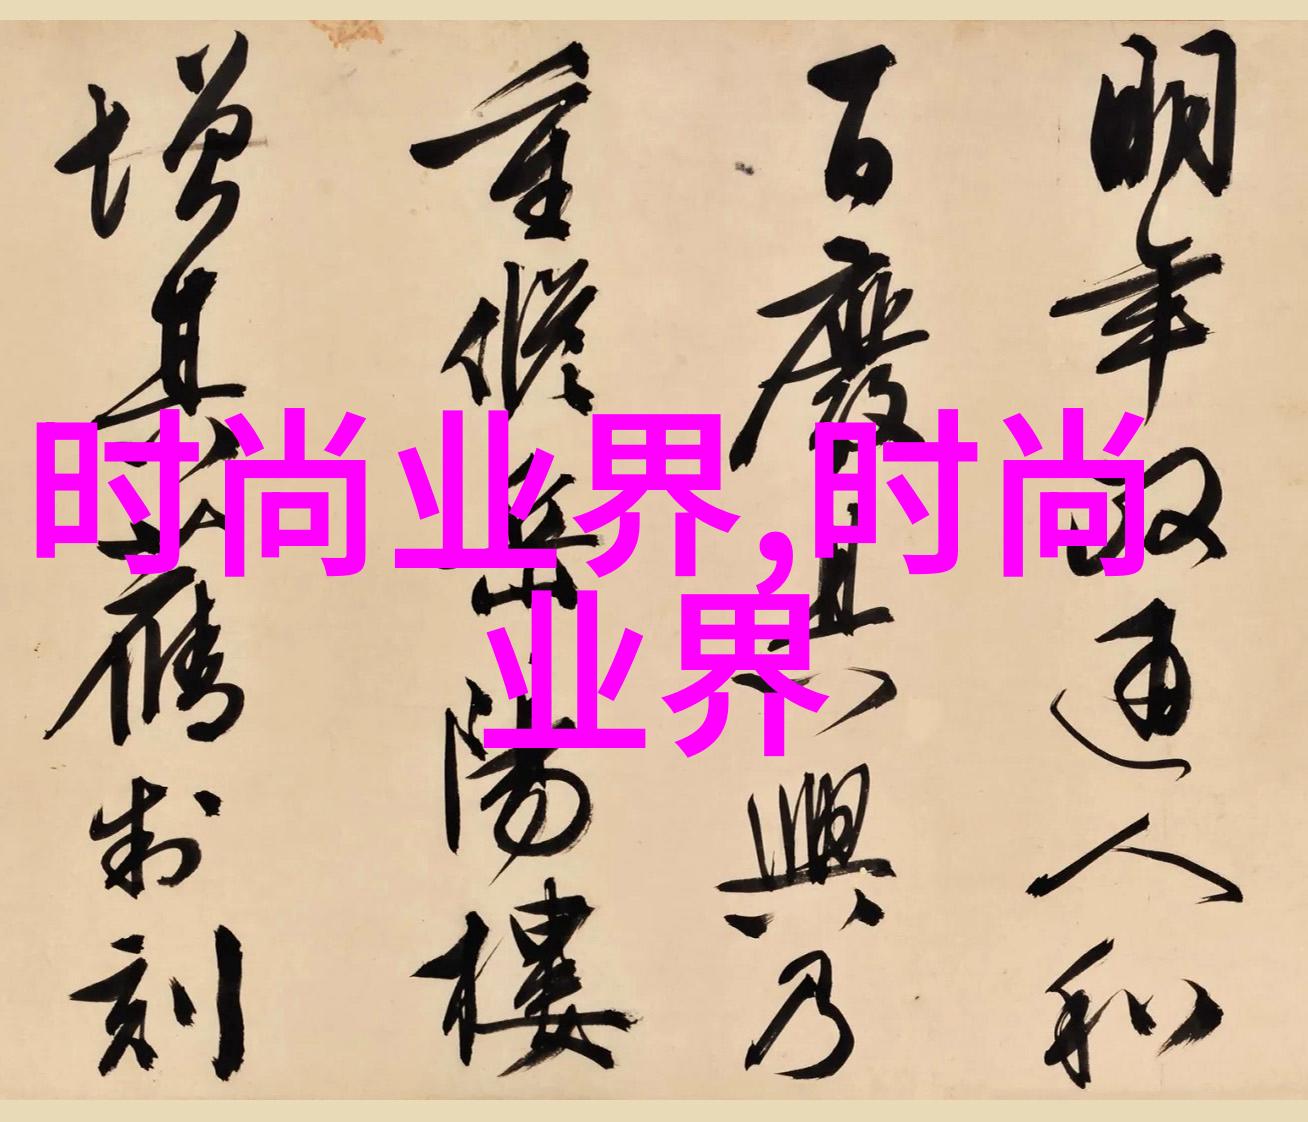 明年政通人和
百廢具興乃
重脩岳陽樓
增其舊制刻
时尚业界,时尚
业界